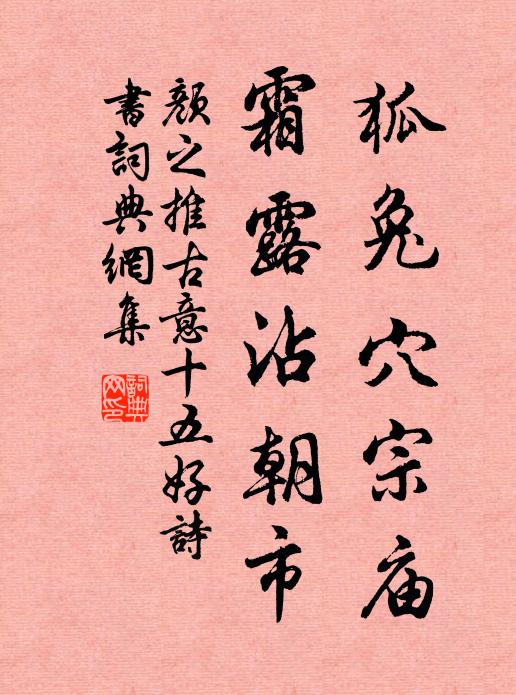 狐兔穴宗庙
霜露沾朝市
顏之推古意十五好詩
書詞典網集
詞典
网印